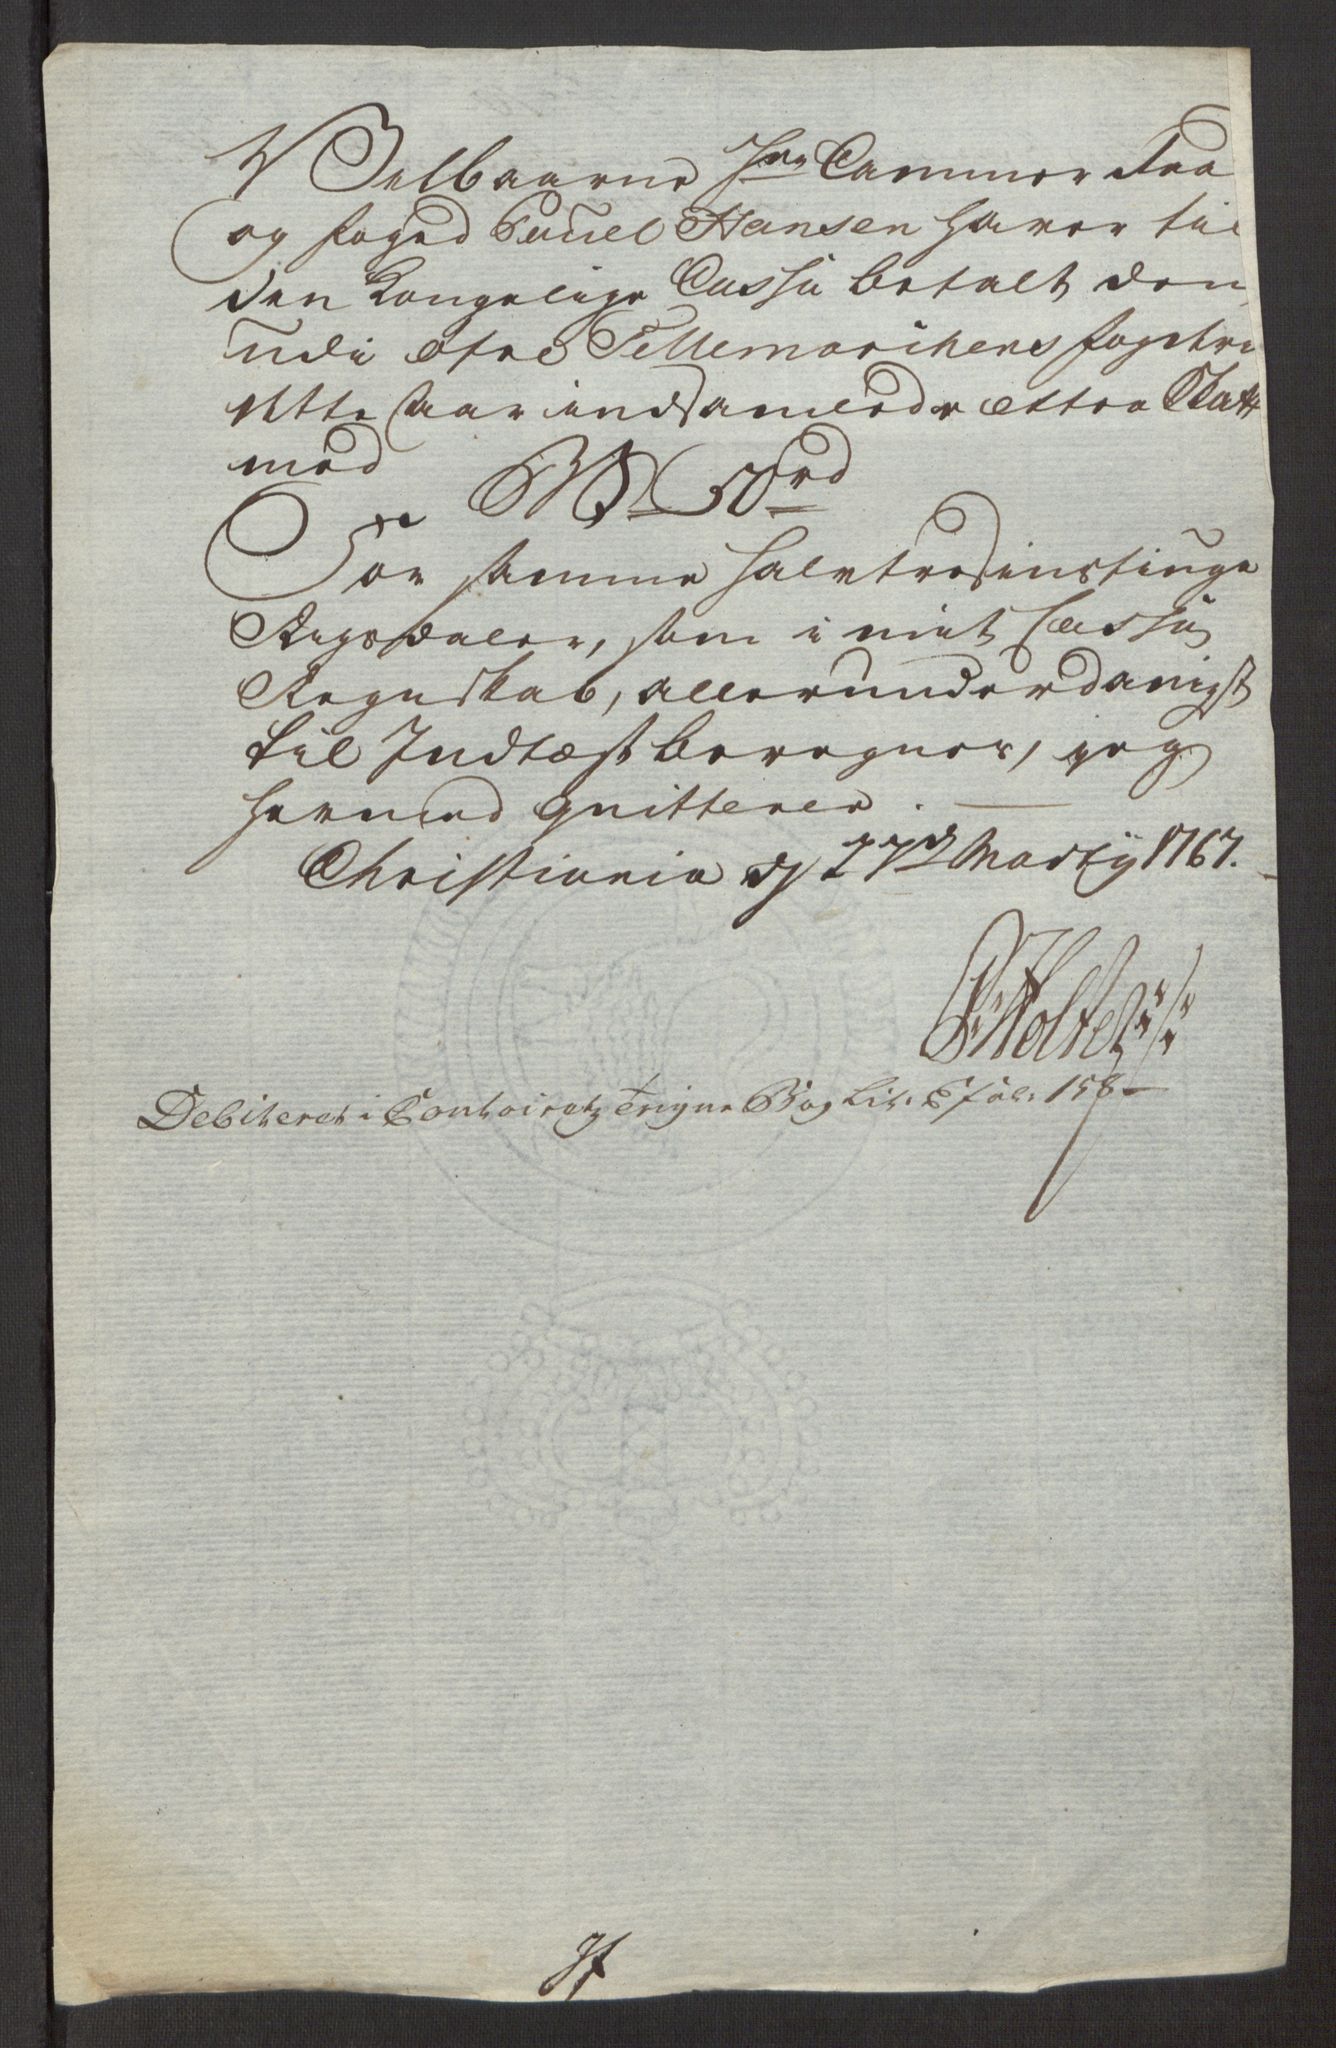 Velbaarne Hrr Cammer Raa
og foged Pauel Hansen haver til
den Kongelige Cassa betalt den
udi øfre Tellemarchens fogderi
dette Aar indsamlede extra Skatt
med
50 rd
For samme halvtredsinstiuge
Rigsdaler, som i mit Cassa
Regnskab, allerunderdanigst
til Indtægt beregnes, jeg
hermed qvitterer.
Christiania d 27de Marty 1767.
Holter
Debiteret i Contoiretz Egne Bog Lit. E fol. 158